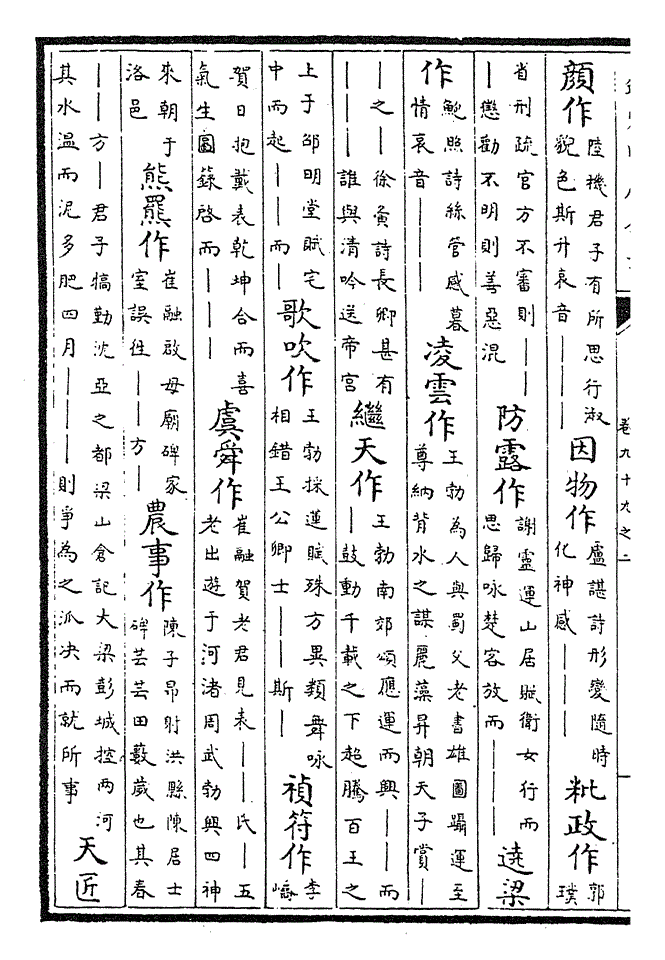 顔作陸機君子有所思行淑貌色斯升哀音——因物作盧諶詩形變隨時化神感———粃政作郭璞
省刑疏官方不審則———懲勸不明則善惡混防露作謝靈運山居賦衛女行而思歸咏楚客放而———遶梁
作鮑照詩絲管感暮情哀音———凌雲作王勃為人與蜀父老書雄圖躡運至尊納背水之謀麗藻昇朝天子賞—
—之—徐賁詩長卿甚有———誰與清吟送帝宮繼天作王勃南郊頌應運而興——而—鼓動千載之下超騰百王之
上于邵明堂賦宅中而起——而—歌吹作王勃採蓮賦殊方異類舞咏相錯王公卿士——斯—禎符作李嶠
賀日抱戴表乾坤合而喜氣生圖籙啓而———虞舜作崔融賀老君見表——氏—五老出遊于河渚周武勃興四神
來朝于洛邑熊羆作崔融啟母廟碑家室誤往——方—農事作陳子昂射洪縣陳居士碑芸芸田藪歲也其春
——方—君子犒勤沈亞之都梁山倉記大梁彭城控兩河其水温而泥多肥四月———則爭為之派决而就所事天匠
卷九十九之二